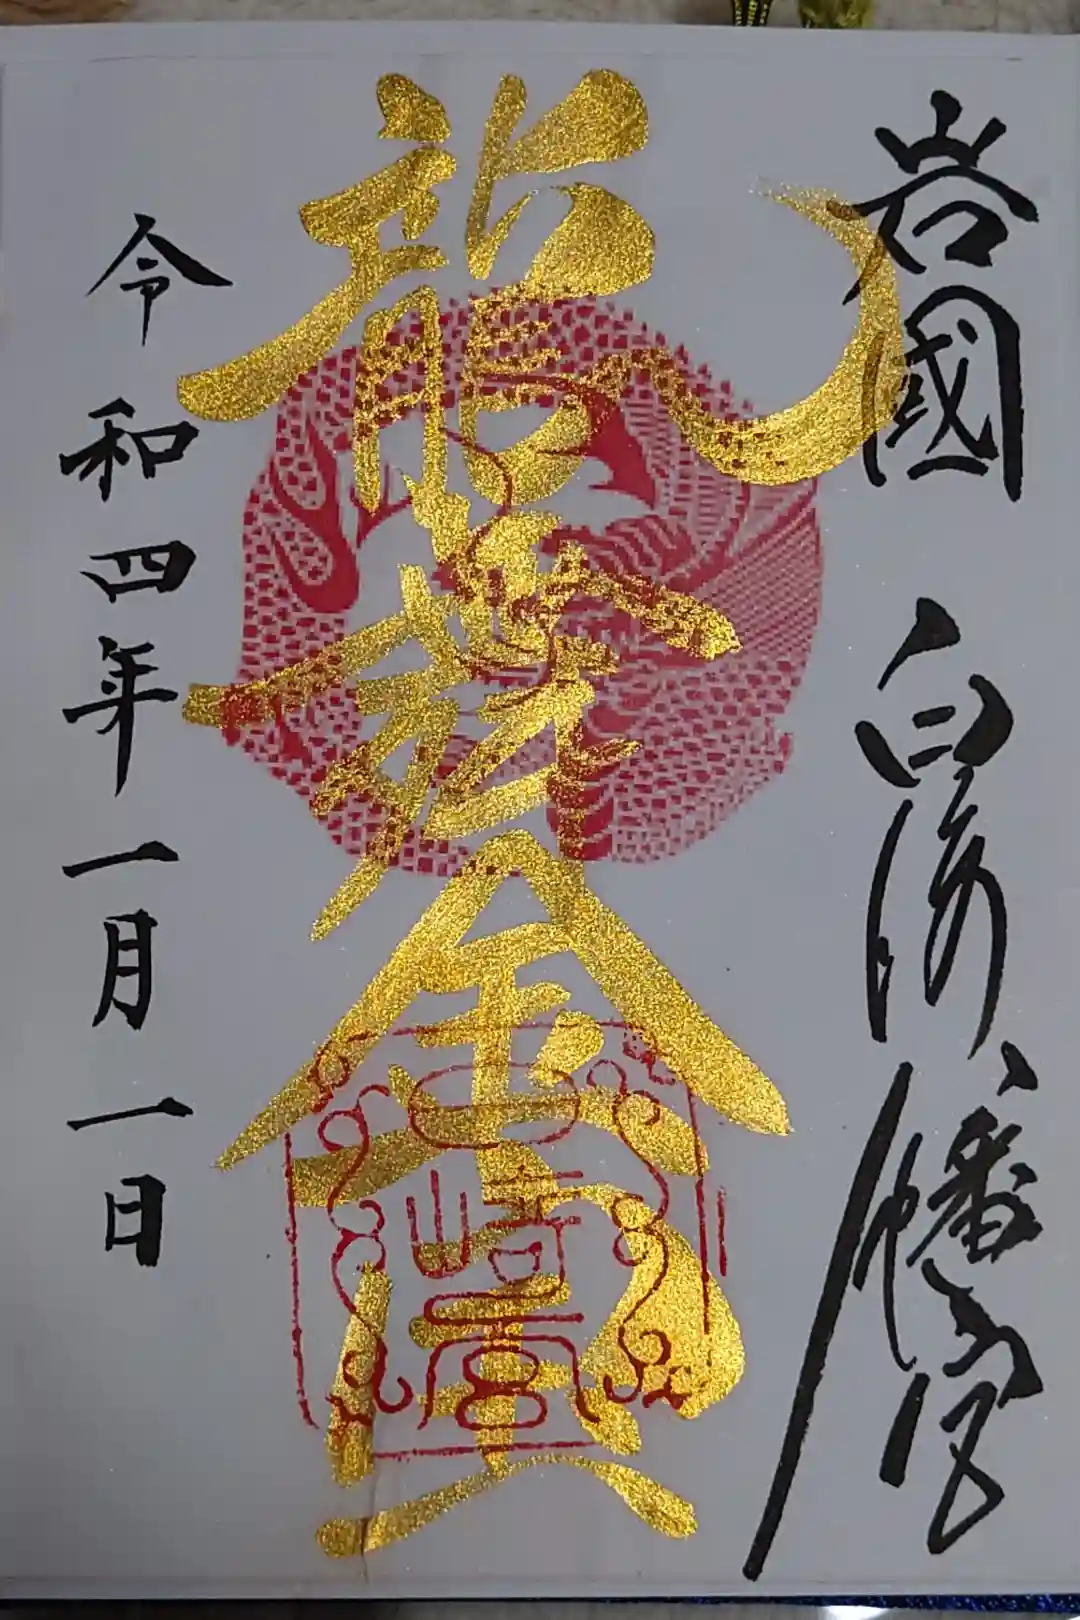 岩國 白崎八幡宮
龍 金
令和四年一月一日